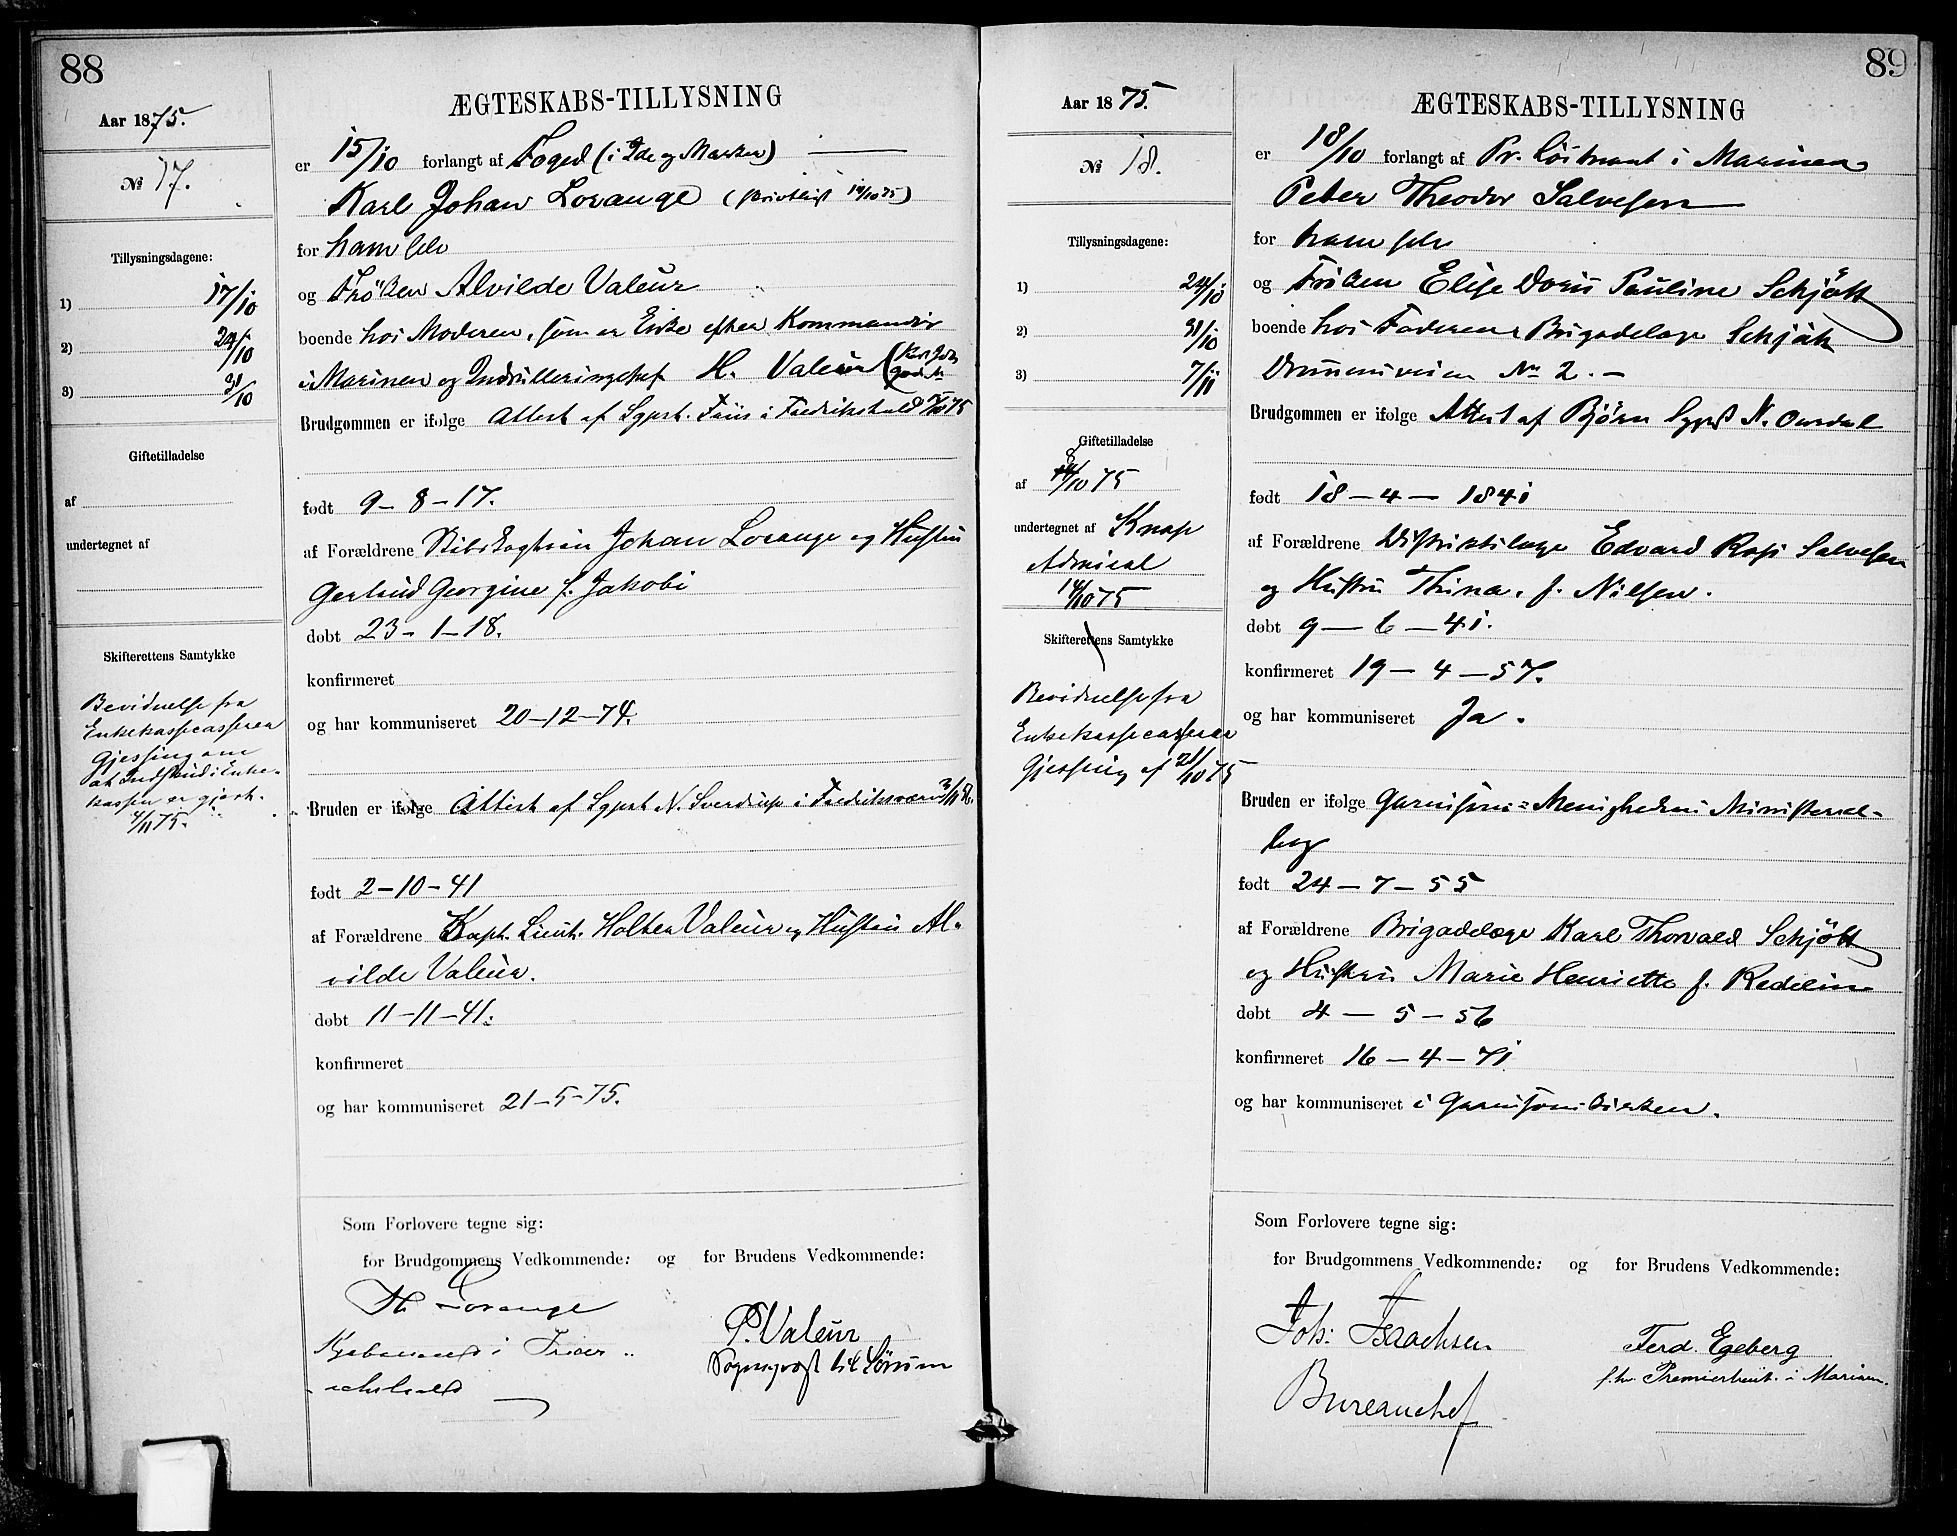 88
Aar 1875.
№ 17.
Tillysningsdagene:
1) 17/10
2) 24/10
3) 31/10
Giftetilladelse
af
undertegnet af
Skifterettens Samtykke
Bevidnelse fra
Enkekassecasserer
Gjessing om
at Indskud i Enke-
kassen er gjort.
4/11 75.
ÆGTESKABS-TILLYSNING
er 15/10 forlangt af Foged (i Ide og Marker)
Karl Johan Lorange (skriftligt 14/10 75)
for ham selv
og Frøken Alvilde Valeur
boende hos Moderen, som er Enke efter Kommandör
i Marinen og Indrulleringschef H. Valeur (Karl Joh
gade
Brudgommen er ifølge Attest af Sgprst. Friis i Fredrikshald 75
født 9-8-17.
af Forældrene Johan Lorange og Hustru
Gertrud Georgine f. Jakobi
døbt 23-1-18.
konfirmeret
og har kommuniseret 20-12-74.
Bruden er ifølge Attest af Sgprst N. Sverdrup i Fredriksværn
født 2-10-41
af Forældrene Kapt. Lieut. Holter Valeur og Hustru Al-
vilde Valeur.
døbt 11-11-41.
konfirmeret
og har kommuniseret 21-5-75.
Som Forlovere tegne sig:
for Brudgommens Vedkommende: og for Brudens Vedkommende:
H. Lorange
P. Valeur
Kjøbmand i Fredr..
Sogneprest til Sørum
ickshald
89
Aar 1875.
№ 18.
Tillysningsdagene:
1) 24/10
2) 31/10
3) 7/11
Giftetilladelse
8
af 14/10 75
undertegnet af Knap
Admiral
14/10 75
Skifterettens Samtykke
Bevidnelse fra
Enkekassecasserer
Gjessing af 21/10 75
ÆGTESKABS-TILLYSNING
er 18/10 forlangt af Pr. Löitnant i Marinen
Peter Theodor Salvesen
for ham selv
og Fröken Elise Doris Pauline Schjött
boende hos Faderen Brigadelæge Schjött
Drammensveien No 2. -
Brudgommen er ifølge Attest af Björn Sgprst N. Omdal
født 18-4-1841
af Forældrene Distriktslæge Edvard Salvesen
og Hustru Thina, f. Nilsen.
døbt 9-6-41.
konfirmeret 19-4-57.
og har kommuniseret Ja.
Bruden er ifølge Garnisons-Menighedens Ministerial-
bog
født 24-7-55
af Forældrene Brigadelæge Karl Thorvald Schjött
og Hustru Marie Henriette f.
døbt 4-5-56
konfirmeret 16-4-71
og har kommuniseret i Garnisonskirken.
Som Forlovere tegne sig:
for Brudgommens Vedkommende: og for Brudens Vedkommende:
Joh: Isaachsen
Ferd. Egeberg
Premierlieut. i Marinen.
Bureauchef